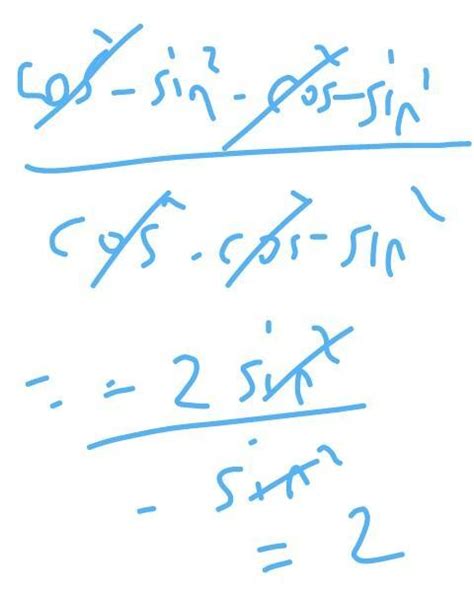 cos² - sin² - cos - sin²
cos² - cos - sin²
= - 2 sin²
- sin²
= 2